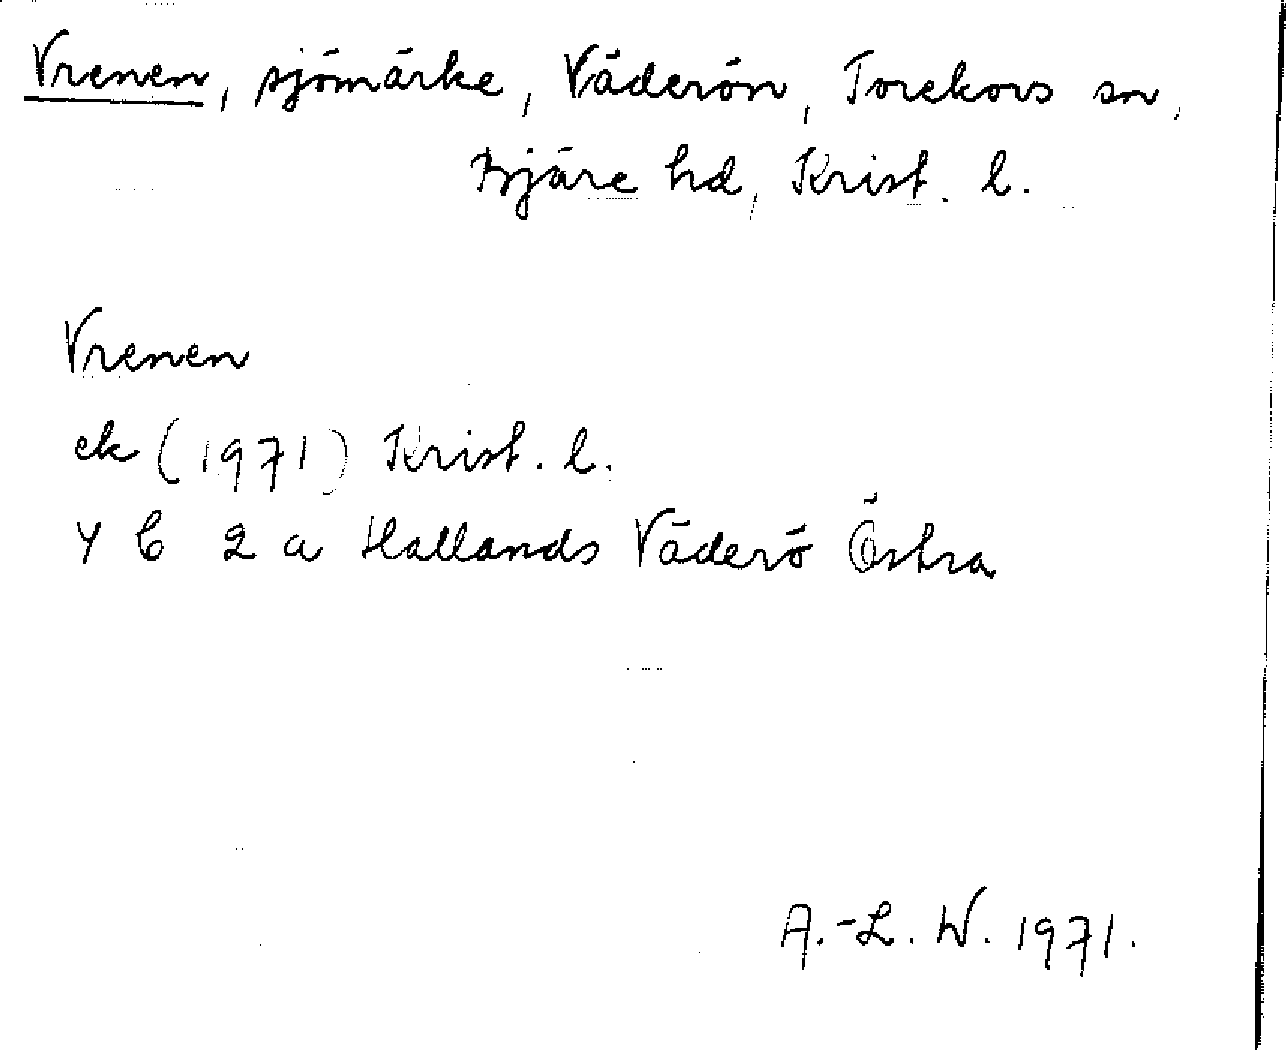 Vrenen, sjömärke, Väderön, Torekovs sn,
Bjäre hd, Krist. l.
Vrenen
ek (1971) Krist. l.
4 C 2 a Hallands Väderö Östra
A.-L. W. 1971.